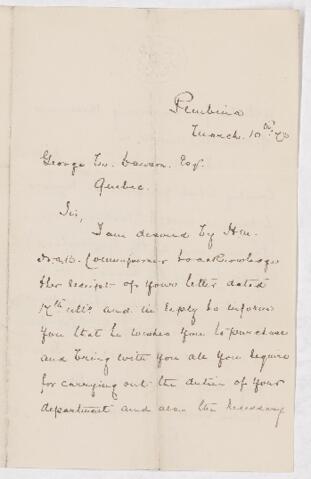 Pembina
March 10th, 73
George M. Dawson. Esqr.
Quebec.
Sir,
I am desired by Hon.
N.A.B. Commissioner to acknowledge
the receipt of your letter dated
ulto. and in reply to inform
you that he wishes you to purchase
and bring with you all you require
for carrying out the duties of your
department and also the necessary